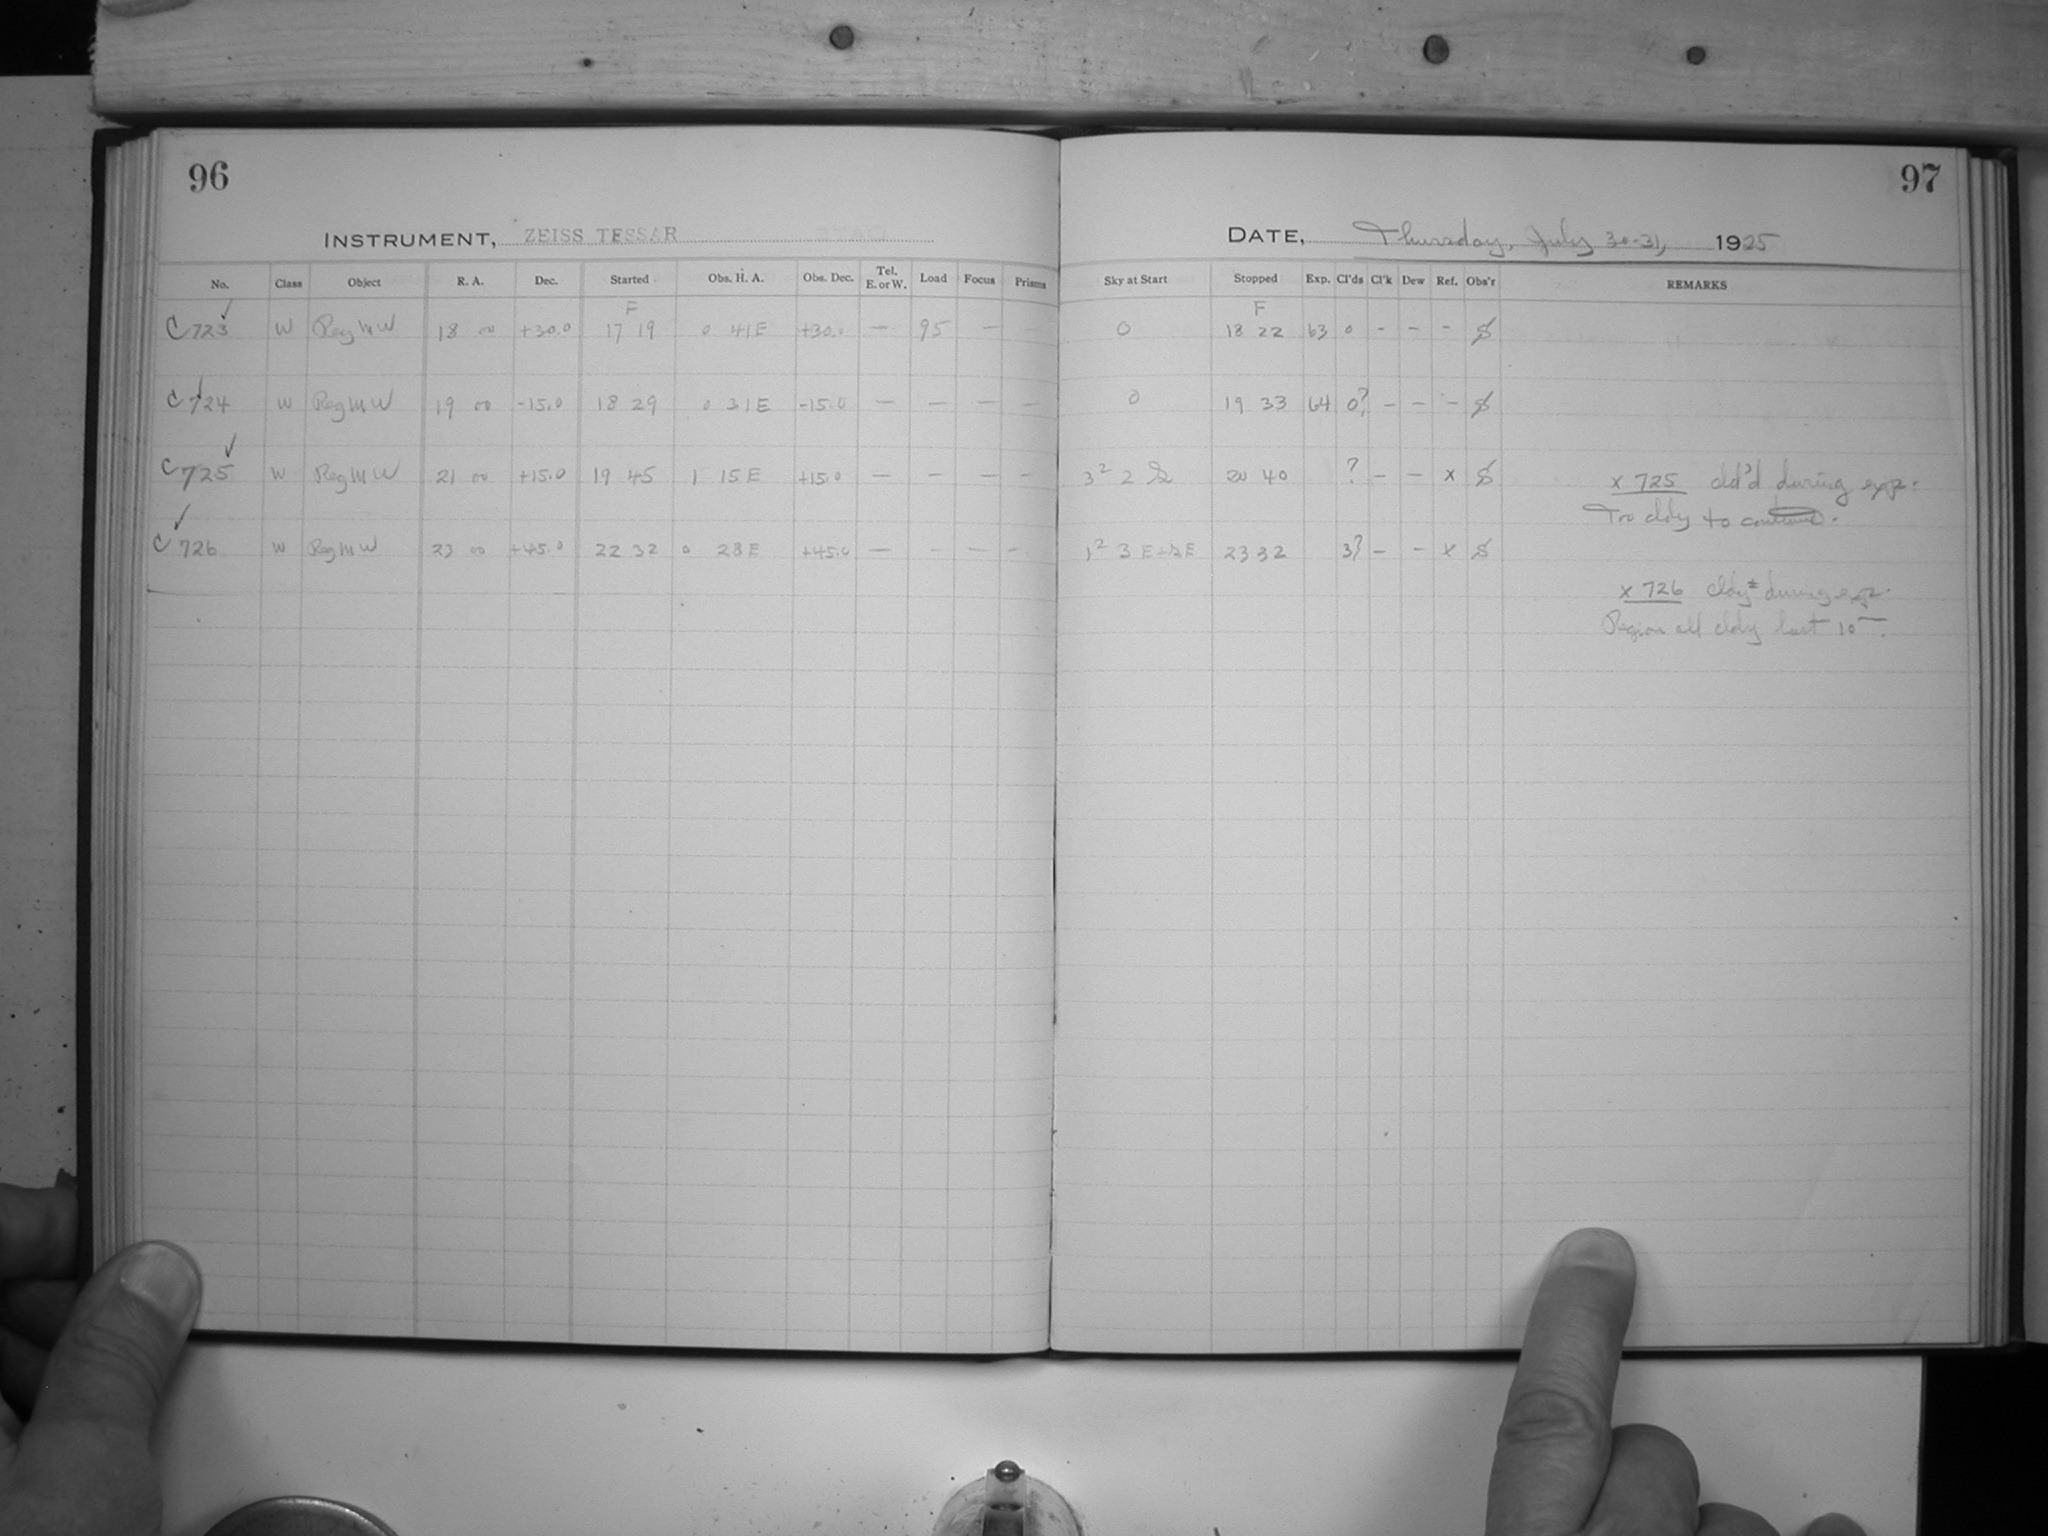 96
INSTRUMENT, ZEISS TESSAR
No. Class Object R. A. Dec. Started Obs. H. A. Obs. Dec. Tel. E. or W. Load Focus Prisms
F
C723 ✓ W Reg M W 18 00 +30.0 17 19 0 41 E +30.0 — 95 — —
C724 ✓ W Reg M W 19 00 -15.0 18 29 0 31 E -15.0 — — — —
C725 ✓ W Reg M W 21 00 +15.0 19 45 1 15 E +15.0 — — — —
C726 ✓ W Reg M W 23 00 +45.0 22 32 0 28 E +45.0 — — — —
97
DATE, Thursday, July 30-31, 1925
Sky at Start Stopped Exp. Cl'ds Cl'k Dew Ref. Obs'r REMARKS
F
0 18 22 63 0 - - -
0 19 33 64 0? - - -
3² 2 20 40 ? - - x
x 725 cld'd during exp.
Too cldy to continue.
1² 3 E 23 32 3? - - x
x 726 cldy during exp.
Region all cldy last 10